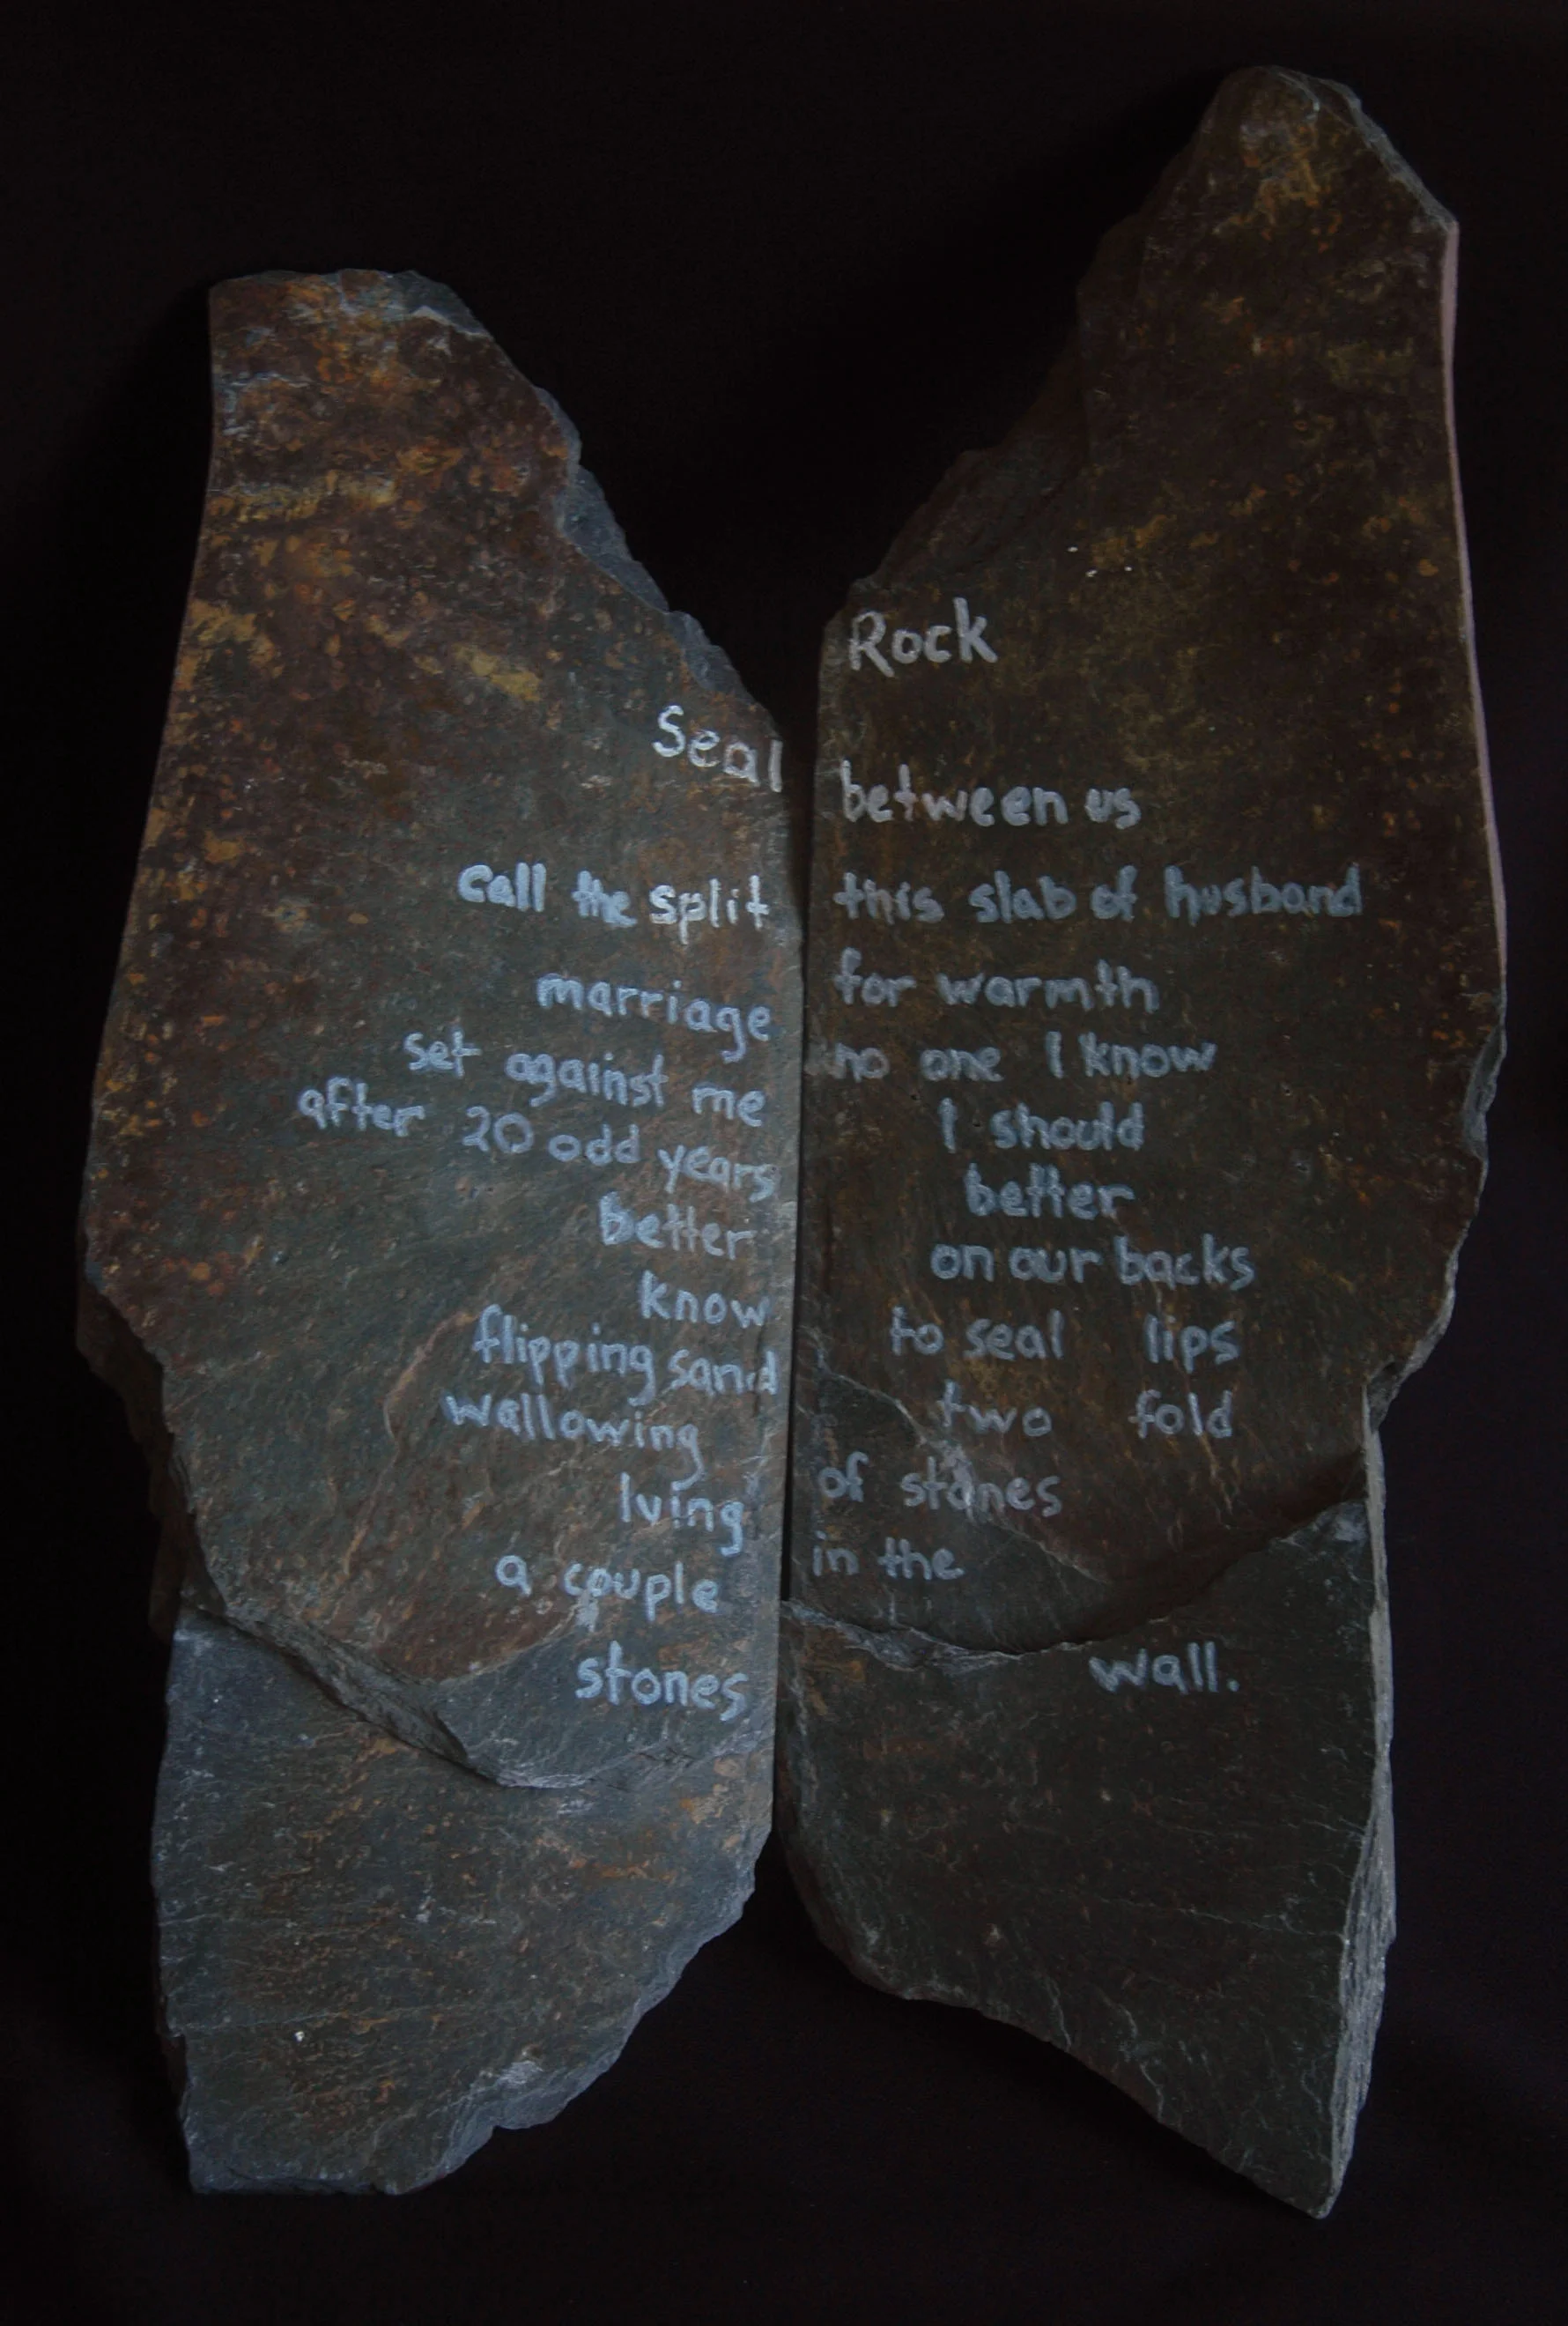 Seal Rock
call the split between us
marriage this slab of husband
set against me for warmth
after 20 odd years no one I know
better I should
know better
flipping sand on our backs
wallowing to seal lips
lying two fold
a couple of stones
stones in the
wall.